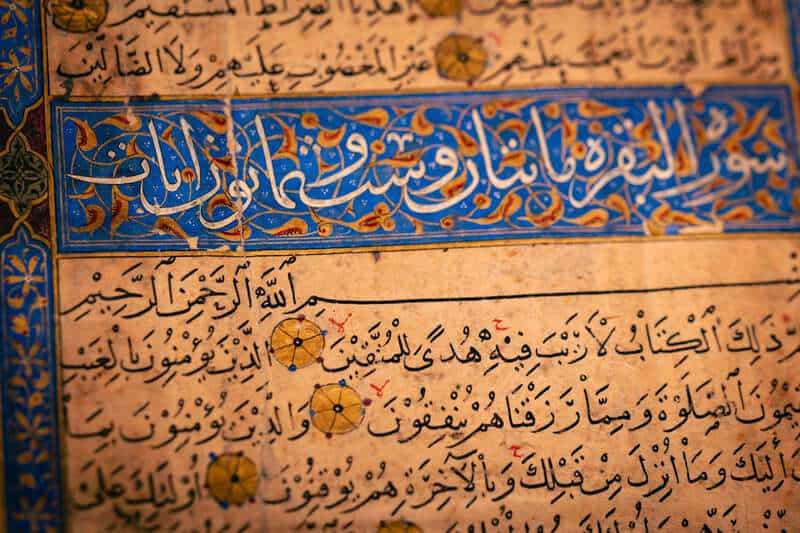 اهدنا الصراط المستقيم
صراط الذين انعمت عليهم غير المغضوب عليهم ولا الضالين
سورة البقرة مائتان وست وثمانون ايات
بسم ٱلله ٱلرحمن ٱلرحيم
ذٰلك ٱلكتاب لا ريب فيه هدى للمتقين الذين يؤمنون بالغيب
يقيمون ٱلصلوة ومما رزقناهم ينفقون والذين يؤمنون بما
اليك وما انزل من قبلك وبالآخرة هم يوقنون اولئك على